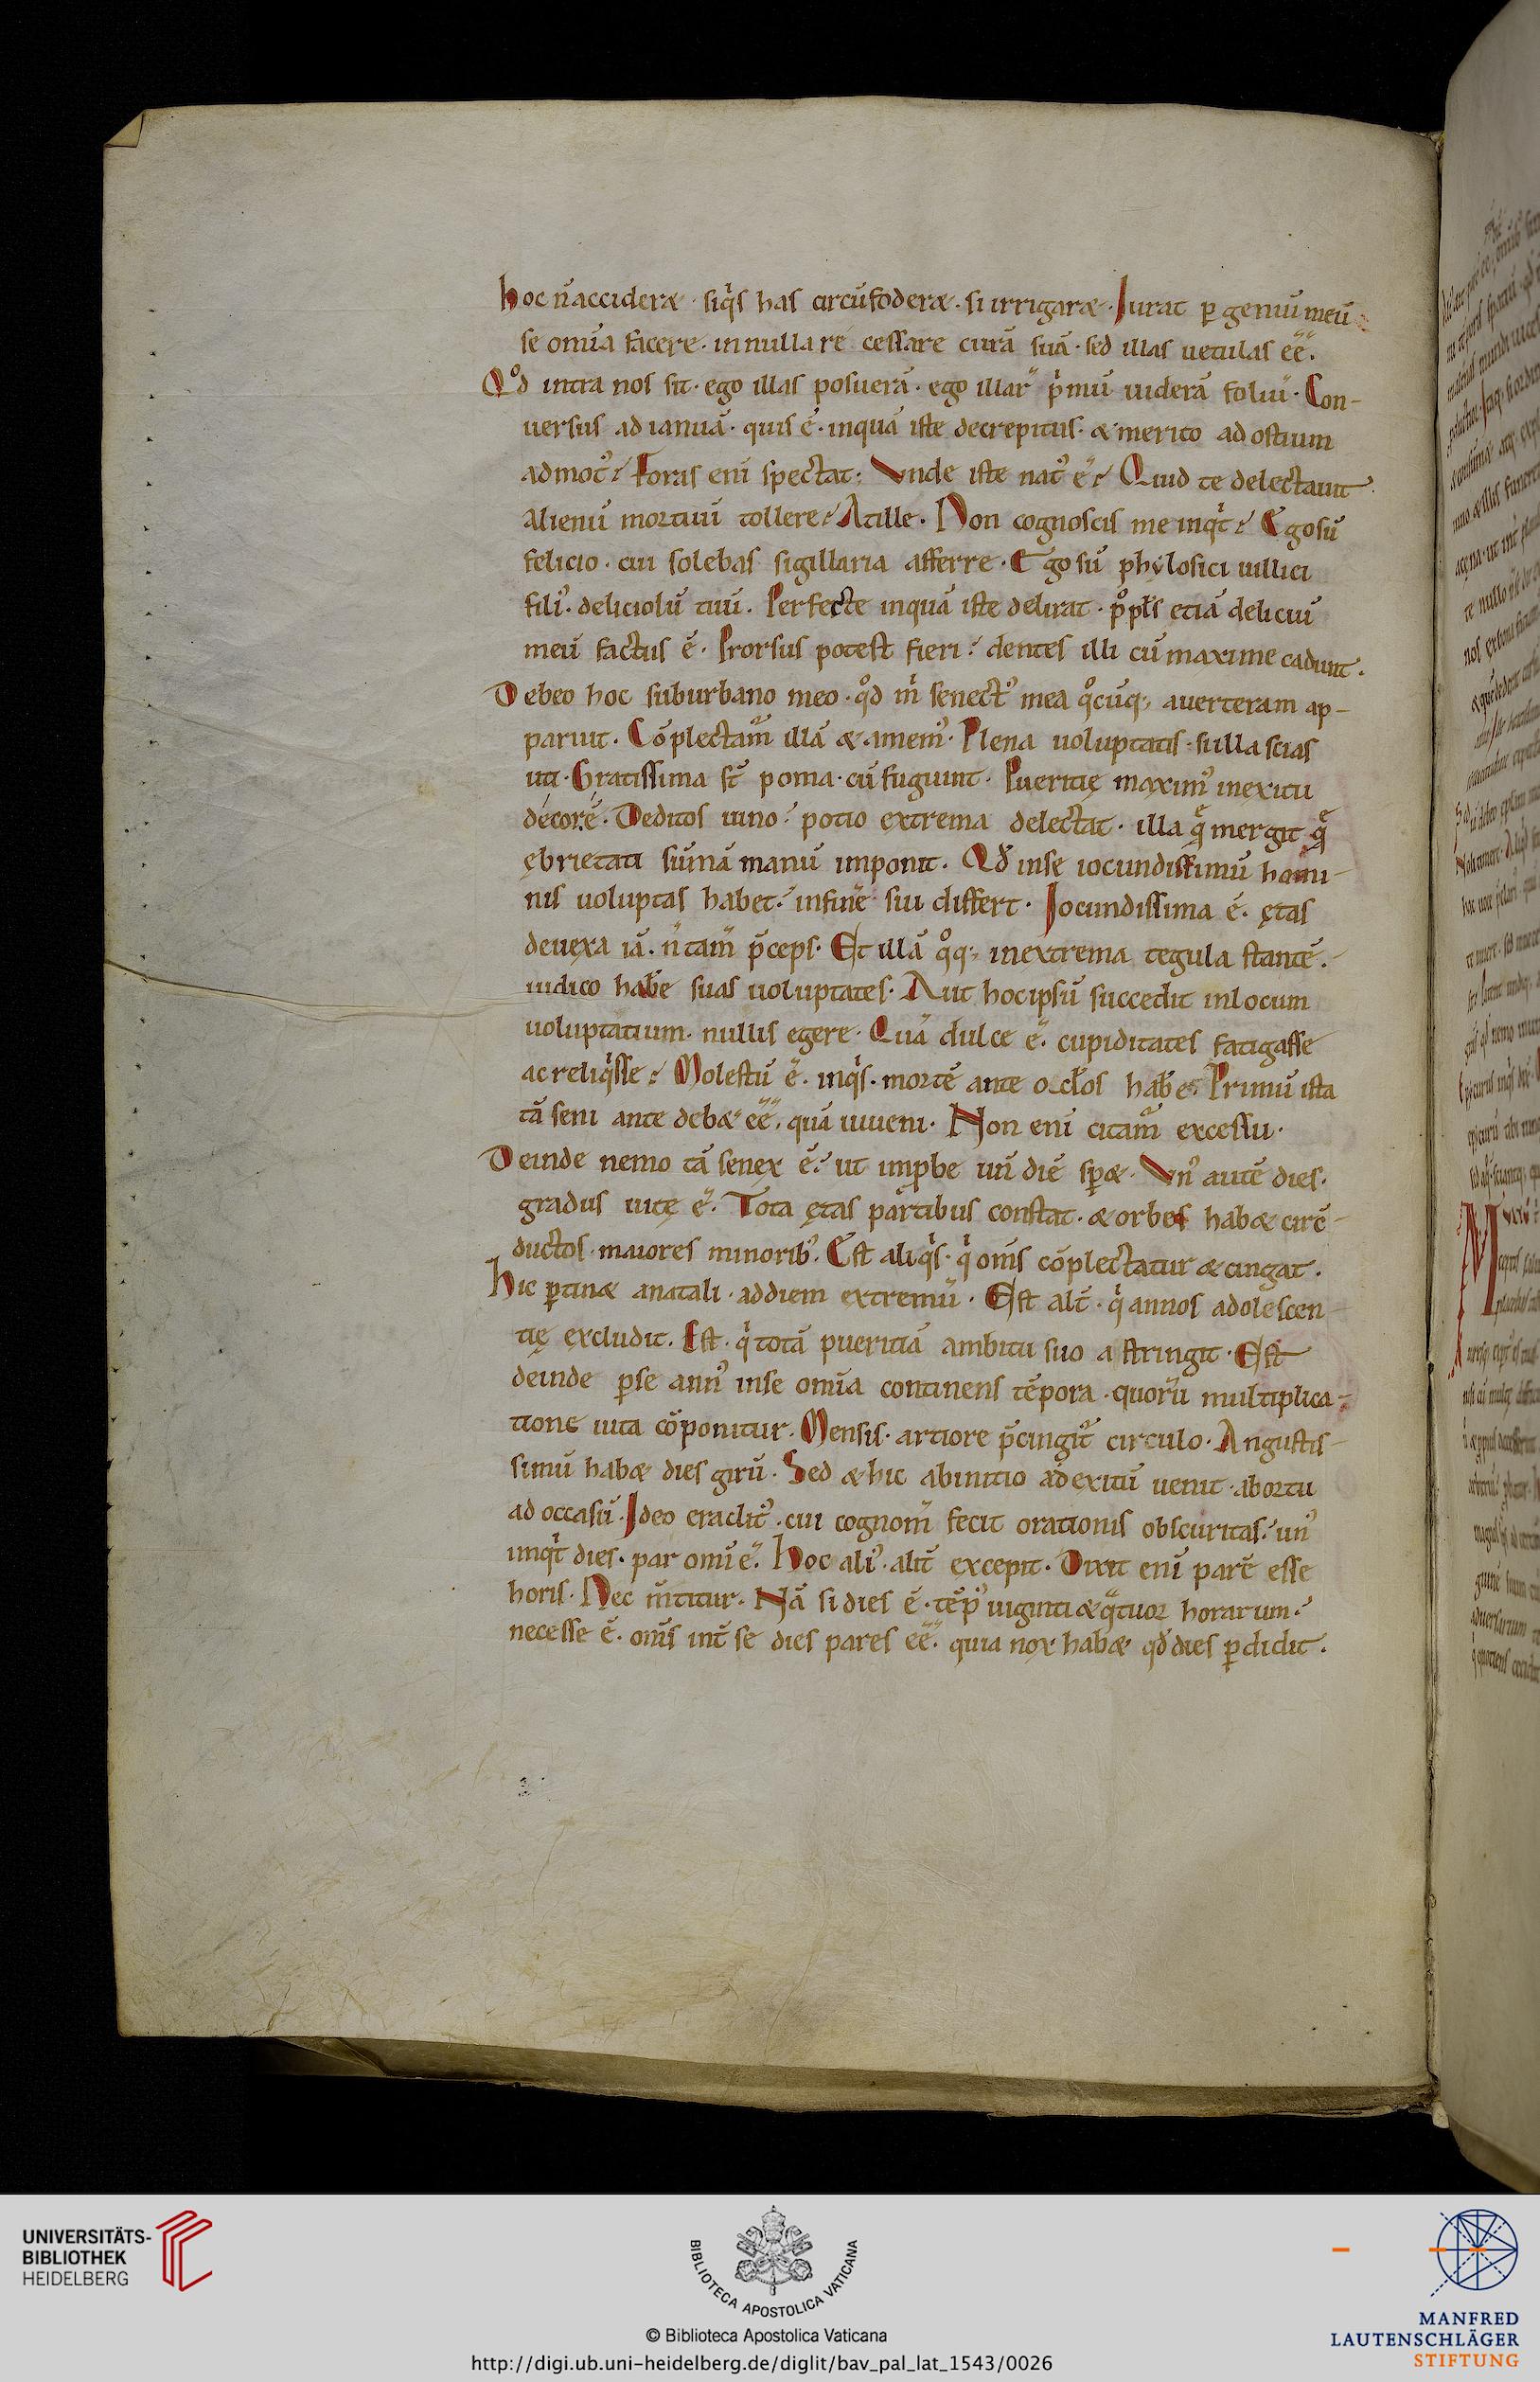 hoc n̄ acciderę · siq̇s has circūfoderę · si irrigarę · Iurat ꝑ geniū meū
se omīa facere · in nulla re cessare curā suā · sed illas uetulas ēē.
Qd̊ intra nos sit · ego illas posuerā · ego illar̄ p̍mū uiderā foliū · Con-
uersus ad ianuā · quis ē · inquā iste decrepitus · & merito ad ostium
admot᾿? Foras enī spectat; Vnde iste nat᾿ ē? Quid te delectauit
alienū mortuū tollere? At ille · Non cognoscis me inq̍t? Ego sū
felicio · cui solebas sigillaria afferre · Ego sū phylosici uillici
fili᾿ · deliciolū tuū · Perfecte inquā iste delirat · p̊pl̄s etiā deliciū
meū factus ē · Prorsus potest fieri? dentes illi cū maxime cadunt.
Debeo hoc suburbano meo · qd̊ m̍ senect᾿ mea q̊cūq; auerteram ap-
paruit · Cōplectam̄ illā & amem᾿ · Plena uoluptatis · si illa scias
uti · Gratissima st̄ poma · cū fugiunt · Pueritię maxim᾿ in exitu
decor ē · Deditos uino? potio extrema delectat · illa q̄ mergit q̄
ębrietati sūmā manū imponit · Qd̄ in se iocundissimū homi-
nis uoluptas habet? in finē sui differt · Iocundissima ē · ętas
deuexa iā · n̄ tam̄ p̄ceps · Et illā q̊q; in extrema tegula stantē ·
iudico hab̄e suas uoluptates · Aut hoc ipsū succedit in locum
uoluptatium · nullis egere · Quā dulce ē · cupiditates fatigasse
ac reliq̍sse? Molestū ē · inq̍s · mortē ante ocl̄os hab̄e · Primū ista
tā seni ante deb& ēē · quā iuueni · Non enī citam̄ ex cessu ·
Deinde nemo tā senex ē? ut imꝓbe un̄ diē sper& · Vn᾿ autē dies ·
gradus uitę ē · Tota ętas partibus constat · & orbes hab& circ̄-
ductos · maiores minorib᾿ · Est aliq̍s · q̍ om̄s cōplectatur & cingat ·
Hic ꝑtin& a natali · ad diem extremū · Est alt̄ · q̍ annos adolescen-
tię excludit · Est · q̍ totā pueritiā ambitu suo astringit · Est
deinde ꝑ se ann᾿ in se omīa continens tēpora · quorū multiplica-
tione uita cōponitur · Mensis · artiore p̄cingit᾿ circulo · Angustis-
simū hab& dies girū · Sed & hic ab initio ad exitū uenit · ab ortu
ad occasū · Ideo eraclit᾿ · cui cognom̄ fecit orationis obscuritas? un᾿
inq̍t dies · par omī ē · Hoc ali᾿ · alit̄ excepit · Dixit enī parē esse
horis · Nec m̄titur · Nā si dies ē · tēp᾿ uiginti & q̄tuor horarum?
necesse ē · om̄s int̄ se dies pares ēē · quia nox hab& qd̄ dies ꝑdidit ·
UNIVERSITÄTS-
BIBLIOTHEK
HEIDELBERG
BIBLIOTECA APOSTOLICA VATICANA
© Biblioteca Apostolica Vaticana
http://digi.ub.uni-heidelberg.de/diglit/bav_pal_lat_1543/0026
MANFRED
LAUTENSCHLÄGER
STIFTUNG